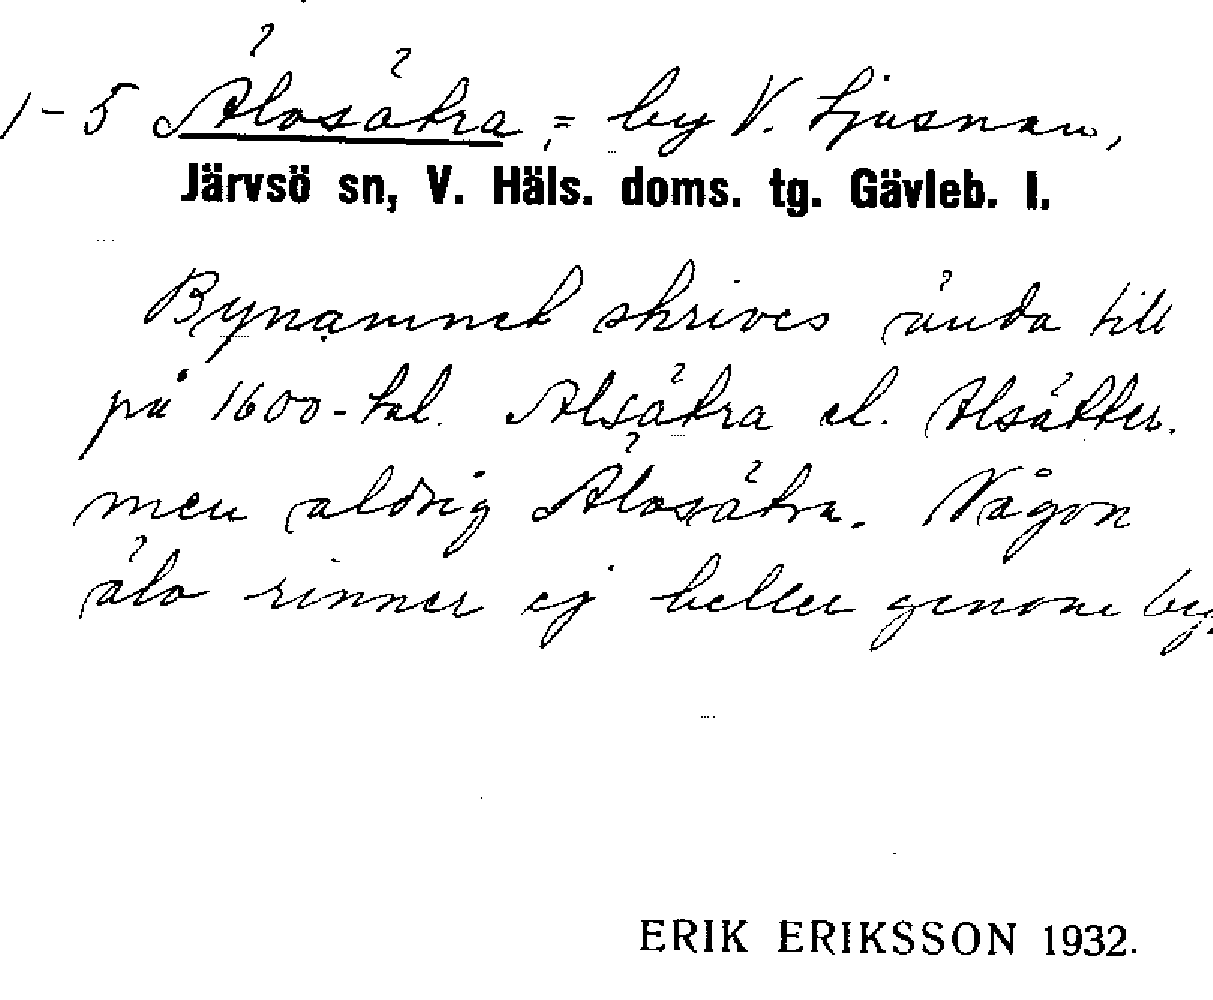 1-5 Älvsätra, = by V. Ljusnan,
Järvsö sn, V. Häls. doms. tg. Gävleb. l.
Bynamnet skrives ända till
på 1600-tal. Alsätra el. Alsätter.
men aldrig Älvsätra. Någon
älv rinner ej heller genom
ERIK ERIKSSON 1932.